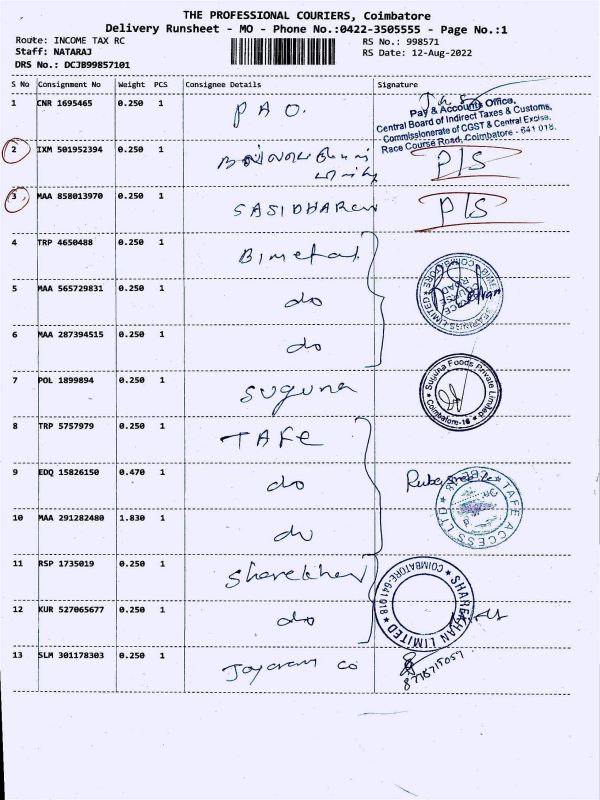 THE PROFESSIONAL COURIERS, Coimbatore
Delivery Runsheet - MO - Phone No.:0422-3505555 - Page No.:1
Route: INCOME TAX RC
RS No.: 998571
Staff: NATARAJ
RS Date: 12-Aug-2022
DRS No.: DCJB99857101
S No Consignment No Weight PCS Consignee Details Signature
1 CNR 1695465 0.250 1 PAO.
Pay & Accounts Office,
Central Board of Indirect Taxes & Customs,
Commissionerate of CGST & Central Excise,
Race Course Road, Coimbatore - 641 018.
2 IXM 501952394 0.250 1 P/S
3 MAA 858013970 0.250 1 SASIDHAREN P/S
4 TRP 4650488 0.250 1 Bimetal
5 MAA 565729831 0.250 1 do
BEARINGS LIMITED RACE COURSE ROAD COIMBATORE
6 MAA 287394515 0.250 1 do
7 POL 1899894 0.250 1 Suguna
Suguna Foods Private Limited
Coimbatore-18
8 TRP 5757979 0.250 1 TAFE
9 EDQ 15826150 0.470 1 do
TAFE ACCESS LTD
10 MAA 291282480 1.830 1 do
11 RSP 1735019 0.250 1 Sharekhan
SHAREKHAN LIMITED COIMBATORE-641018
12 KUR 527065677 0.250 1 do
13 SLM 301178303 0.250 1 Jayaram Co